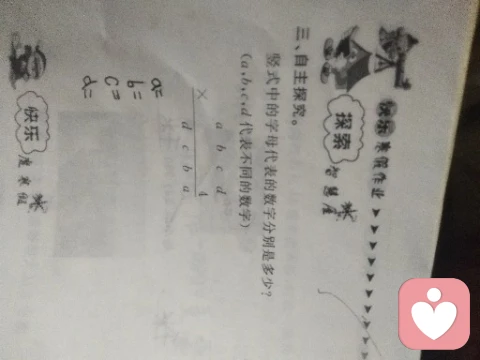 快乐寒假作业
探索 智慧屋
三、自主探究。
竖式中的字母代表的数字分别是多少?
(a,b,c,d 代表不同的数字)
a b c d
× 4
d c b a
a=
b=
c=
d=
快乐 度寒假